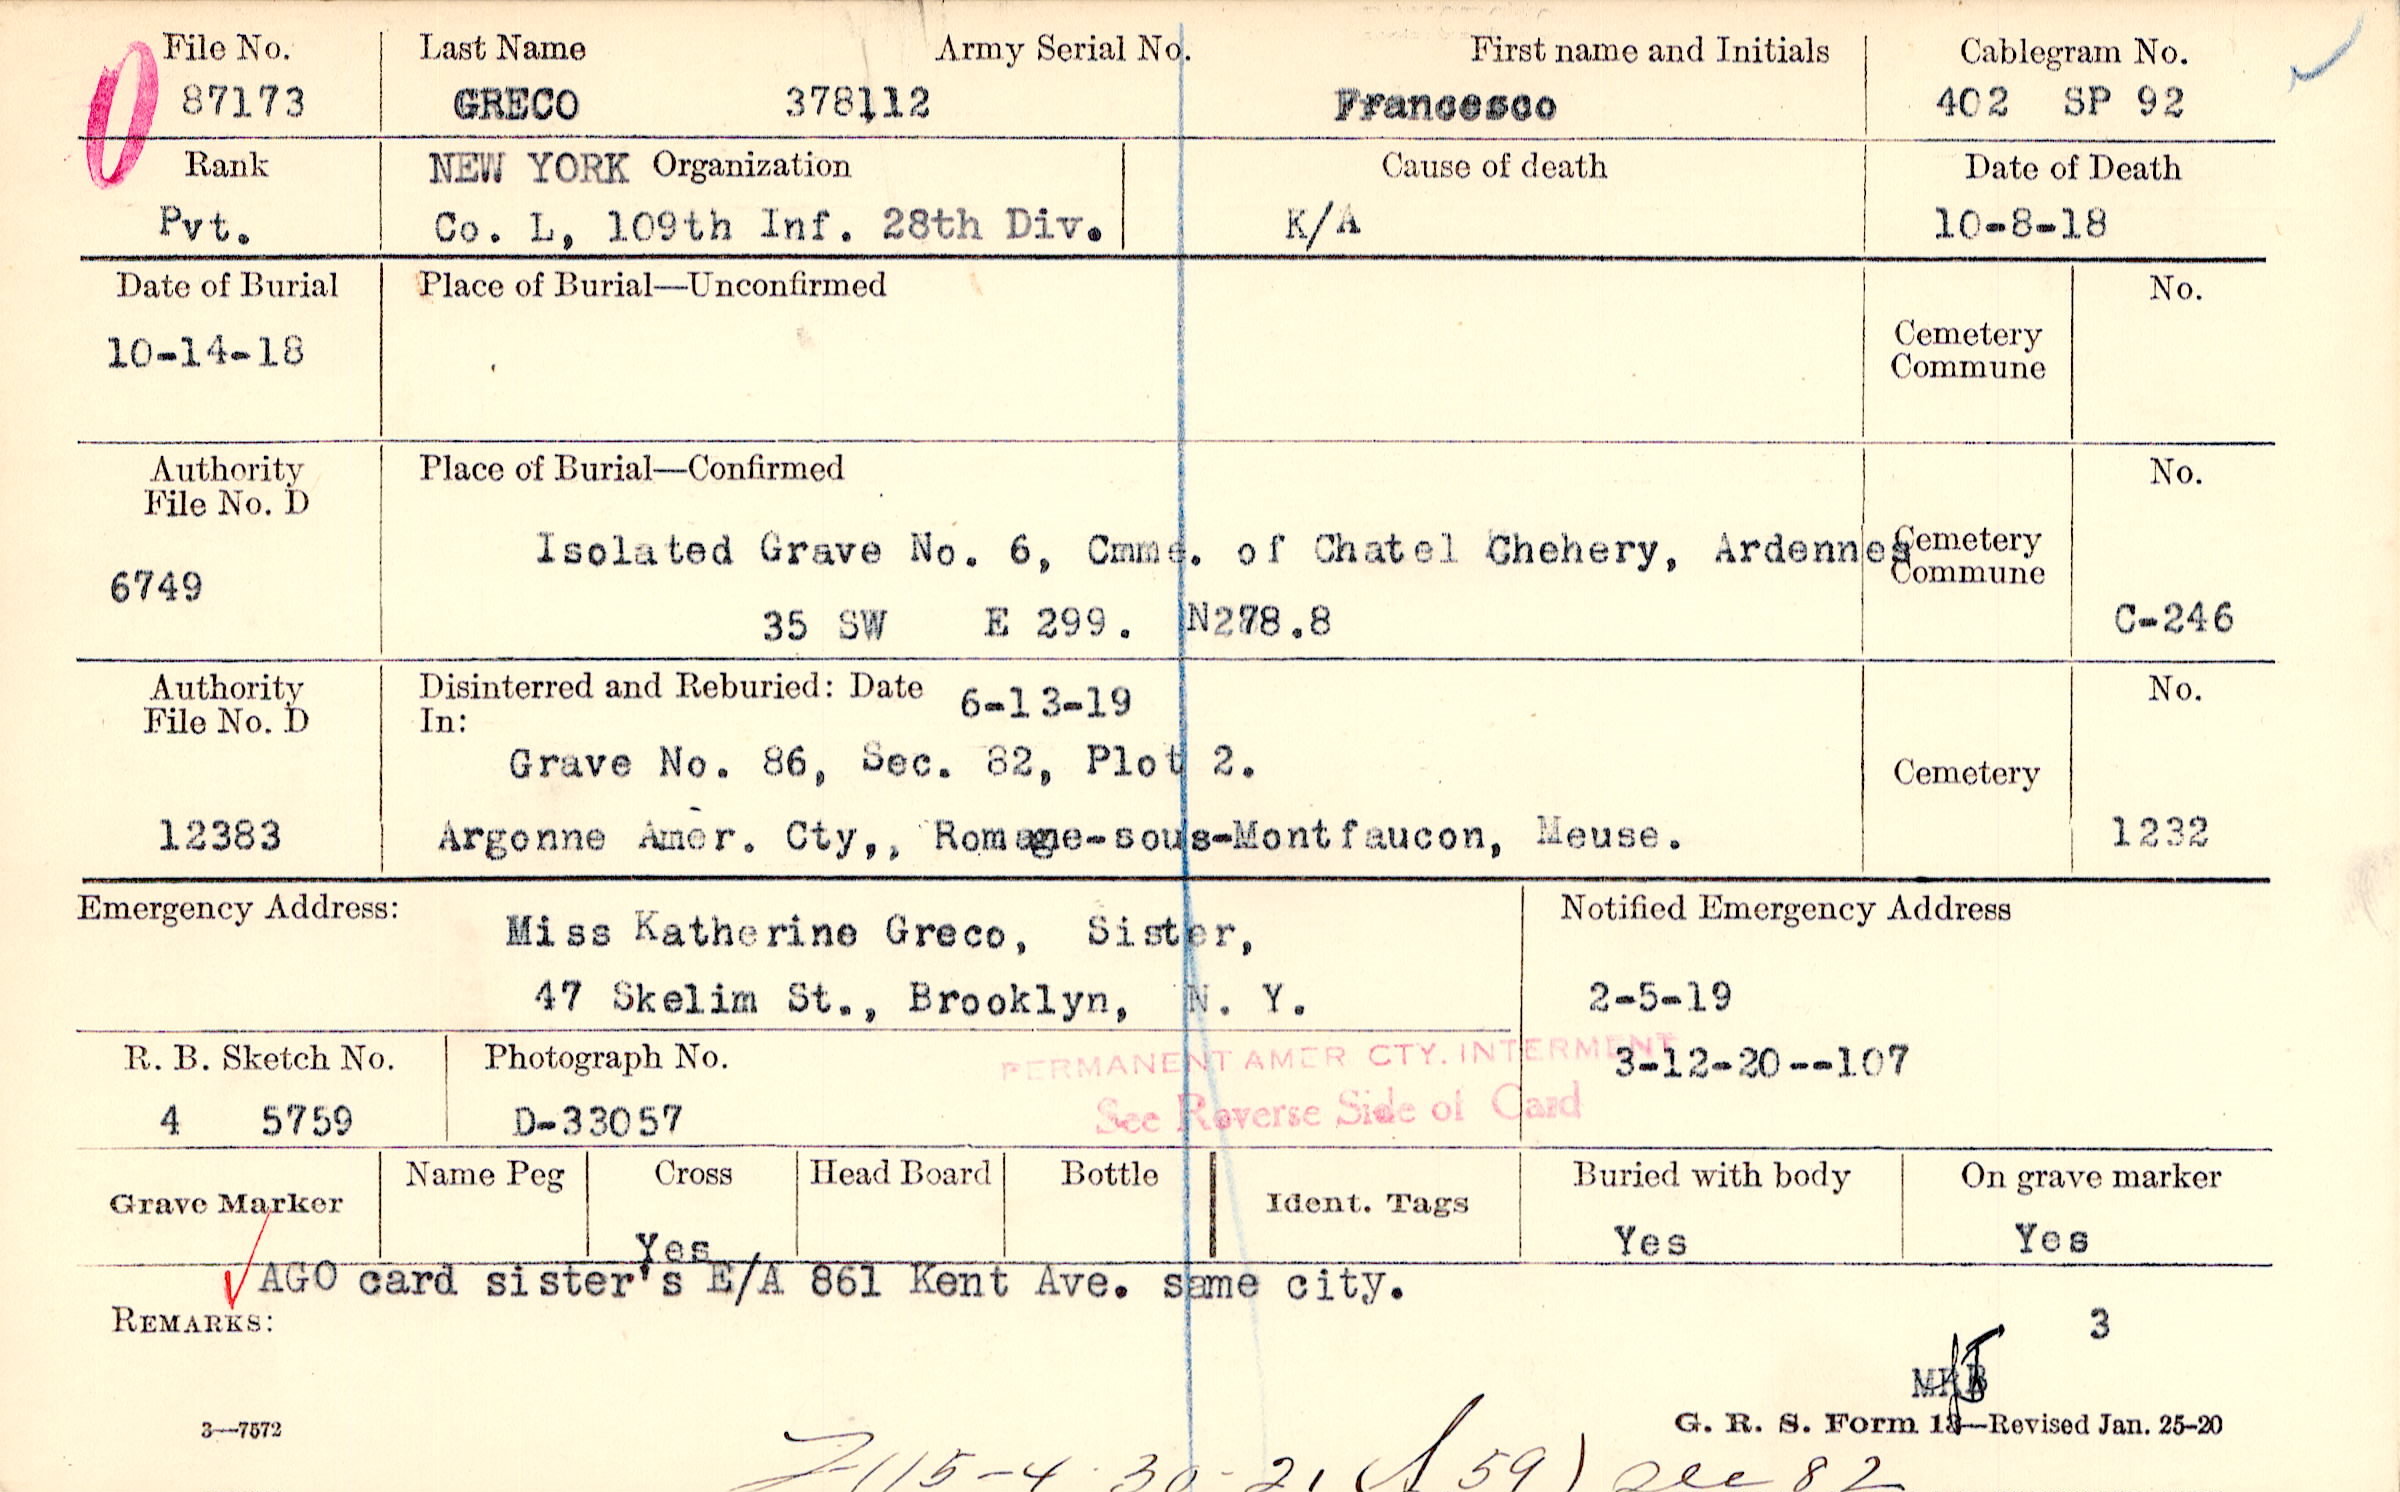 File No. Last Name Army Serial No. First name and Initials Cablegram No.
87173 GRECO 378112 Francesco 402 SP 92
Rank NEW YORK Organization Cause of death Date of Death
Pvt. Co. L, 109th Inf. 28th Div. K/A 10-8-18
Date of Burial Place of Burial—Unconfirmed No.
10-14-18 Cemetery
Commune
Authority Place of Burial—Confirmed No.
File No. D
Isolated Grave No. 6, Cmme. of Chatel Chehery, Ardennes Cemetery
6749 Commune
35 SW E 299. N278.8 C-246
Authority Disinterred and Reburied: Date 6-13-19 No.
File No. D In:
Grave No. 86, Sec. 82, Plot 2. Cemetery
12383 Argonne Amer. Cty,, Romagne-sous-Montfaucon, Meuse. 1232
Emergency Address: Notified Emergency Address
Miss Katherine Greco, Sister,
47 Skelim St., Brooklyn, N. Y. 2-5-19
R. B. Sketch No. Photograph No. PERMANENT AMER CTY. INTERMENT 3-12-20--107
4 5759 D-33057 See Reverse Side of Card
Grave Marker Name Peg Cross Head Board Bottle Ident. Tags Buried with body On grave marker
Yes Yes Yes
AGO card sister's E/A 861 Kent Ave. same city.
REMARKS: 3
3—7572 G. R. S. Form 13—Revised Jan. 25-20
115-4-30-21 (A 59) see 82